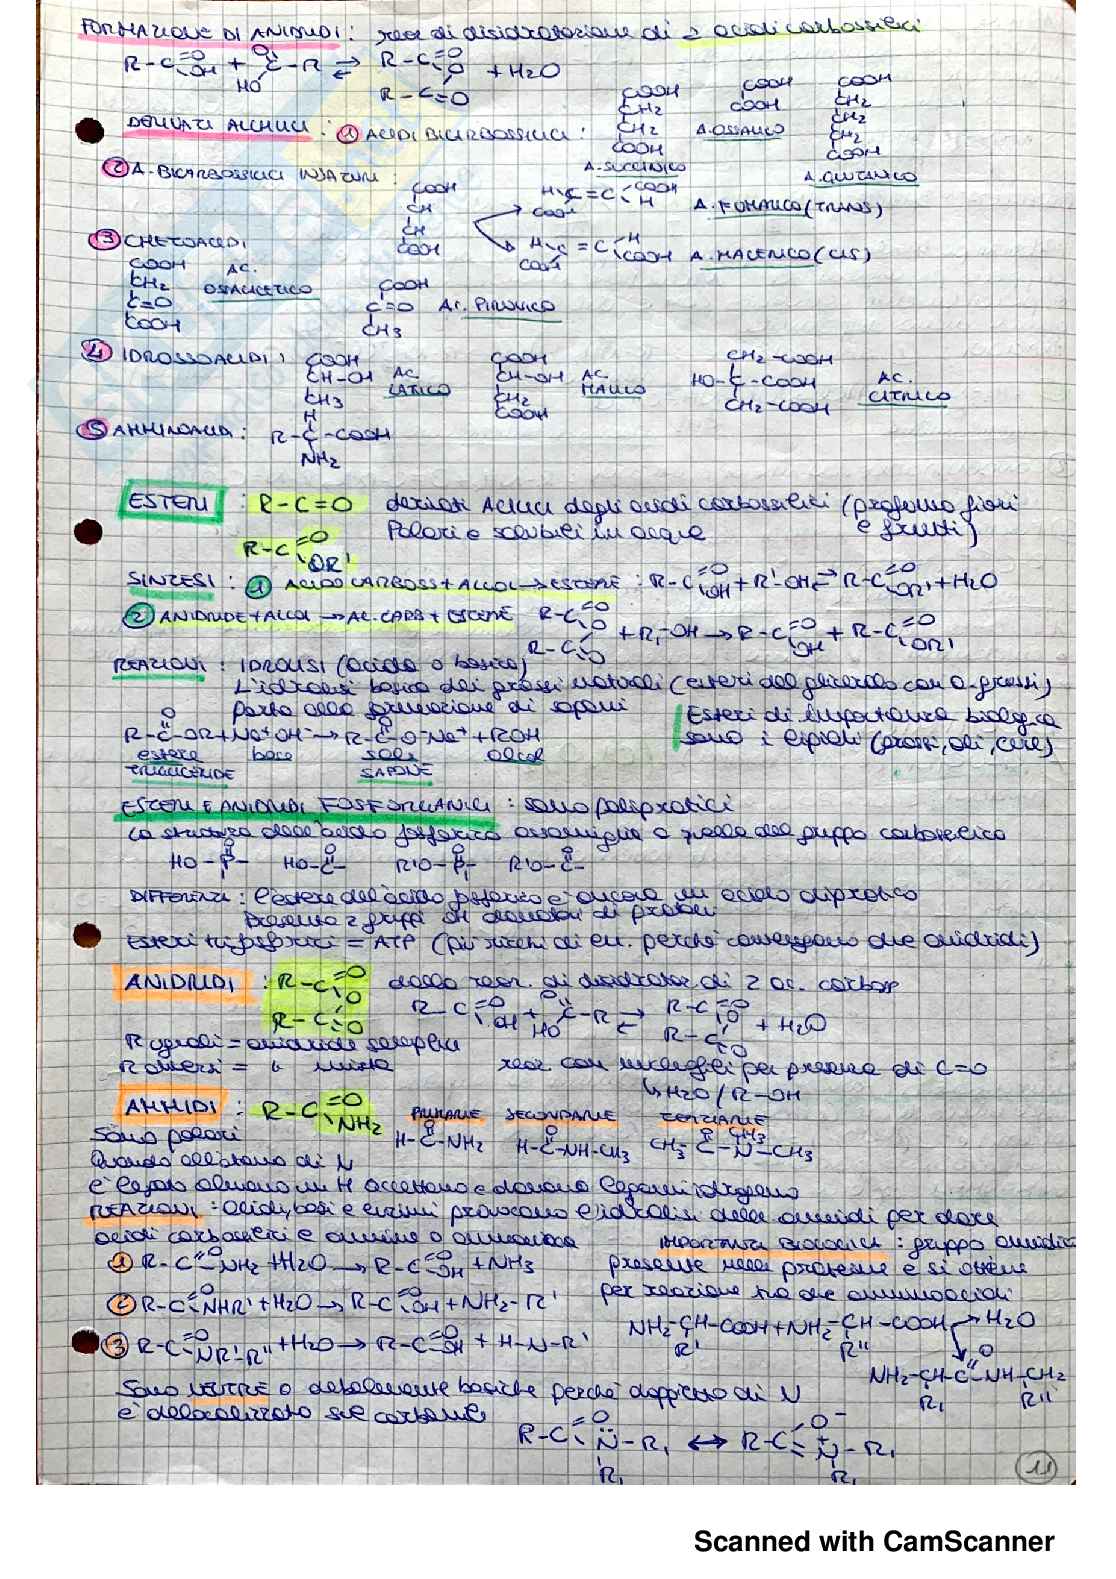 FORMAZIONE DI ANIDRIDI: reaz di disidratazione di 2 acidi carbossilici
R-C=O OH + HO O=C-R ⇌ R-C=O O R-C=O + H2O
DERIVATI ACILICI: ① ACIDI BICARBOSSILICI:
COOH CH2 CH2 COOH A.SUCCINICO
COOH COOH A.OSSALICO
COOH CH2 CH2 CH2 COOH A.GLUTARICO
② A.BICARBOSSILICI INSATURI:
COOH CH CH COOH
H C=C COOH COOH H A.FUMARICO (TRANS)
H C=C H COOH COOH A.MALEICO (CIS)
③ CHETOACIDI
COOH CH2 C=O COOH AC. OSSALACETICO
COOH C=O CH3 AC. PIRUVICO
④ IDROSSOACIDI:
COOH CH-OH CH3 AC LATTICO
COOH CH-OH CH2 COOH AC MALICO
CH2-COOH HO-C-COOH CH2-COOH AC. CITRICO
⑤ AMMINOACIDI: H R-C-COOH NH2
ESTERI: R-C=O derivati Acilici degli acidi carbossilici (profumo fiori e frutti)
R-C=O OR' Polari e solubili in acqua
SINTESI: ① ACIDO CARBOSS + ALCOL → ESTERE: R-C=O OH + R'-OH ⇌ R-C=O OR' + H2O
② ANIDRIDE + ALCOL → AC.CARB + ESTERE R-C=O O R-C=O + R1-OH → R-C=O OH + R-C=O OR1
REAZIONI: IDROLISI (acida o basica)
L'idrolisi basica dei grassi naturali (esteri del glicerolo con a.grassi)
porta alla formazione di saponi
R-C=O-OR + Na+OH- → R-C=O-O-Na+ + ROH
estere base sale alcol
TRIGLICERIDE SAPONE
Esteri di importanza biologica
sono i lipidi (grassi, oli, cere)
ESTERI E ANIDRIDI FOSFORICI: sono poliprotici
La struttura dell'acido fosforico assomiglia a quella del gruppo carbossilico
HO-P=O HO-C=O R'O-P=O R'O-C=O
DIFFERENZA: L'estere dell'acido fosforico è ancora un acido diprotico
presenta 2 gruppi OH donatori di protoni
Esteri trifosforici = ATP (più ricchi di en. perché contengono due anidridi)
ANIDRIDI: R-C=O O R-C=O dalla reaz. di disidrataz di 2 ac. carboss
R-C=O OH + HO O=C-R ⇌ R-C=O O R-C=O + H2O
R uguali = anidride semplice
R diversi = " mista
reaz con nucleofili per presenza di C=O
↳ H2O / R-OH
AMMIDI: R-C=O NH2
PRIMARIE SECONDARIE TERZIARIE
H-C=O-NH2 H-C=O-NH-CH3 CH3-C=O-N-CH3 CH3
Sono polari
Quando all'atomo di N
è legato almeno un H accettano e donano legami idrogeno
REAZIONI: acidi, basi e enzimi provocano l'idrolisi delle ammidi per dare
acidi carbossilici e ammine o ammoniaca
① R-C=O NH2 + H2O → R-C=O OH + NH3
② R-C=O NHR' + H2O → R-C=O OH + NH2-R'
③ R-C=O NR'-R" + H2O → R-C=O OH + H-N-R'
IMPORTANZA BIOLOGICA: gruppo ammidico
presente nelle proteine e si ottiene
per reazione tra due amminoacidi
NH2-CH-COOH + NH2-CH-COOH → H2O
R' R"
NH2-CH-C=O-NH-CH2
R1 R"
Sono NEUTRE o debolmente basiche perché doppietto di N
è delocalizzato sul carbonile
R-C=O N-R1 R1 ↔ R-C-O- =N+-R1 R1
11
Scanned with CamScanner